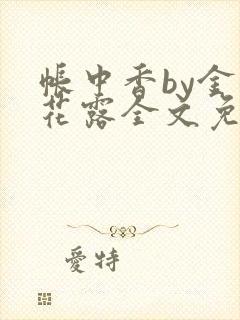 帐中香by金
花露全文免
爱特